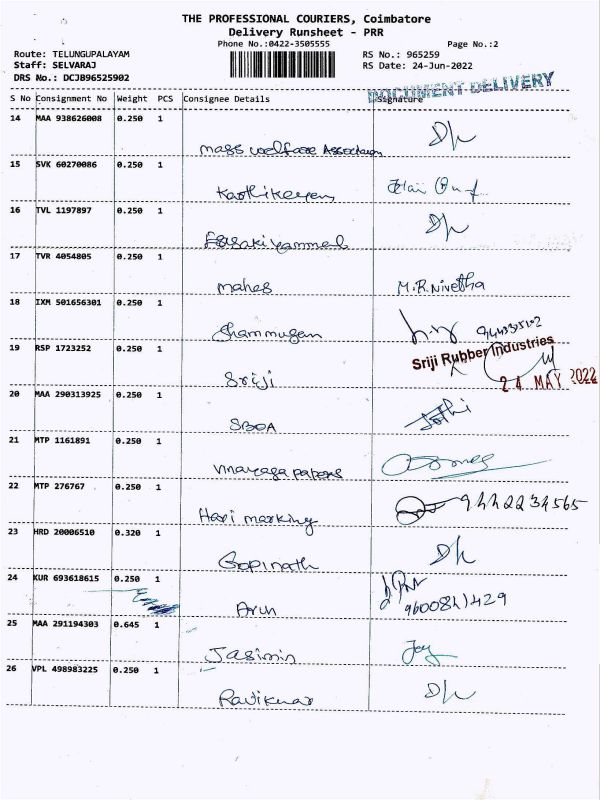 THE PROFESSIONAL COURIERS, Coimbatore
Delivery Runsheet - PRR
Phone No.:0422-3505555 Page No.:2
Route: TELUNGUPALAYAM RS No.: 965259
Staff: SELVARAJ RS Date: 24-Jun-2022
DRS No.: DCJB96525902
DOCUMENT DELIVERY
S No Consignment No Weight PCS Consignee Details Signature
14 MAA 938626008 0.250 1
mass welfare Association
15 SVK 60270086 0.250 1
Karthikeyan
16 TVL 1197897 0.250 1
Esakiyammal
17 TVR 4054805 0.250 1
mahes M.R.Nivetha
18 IXM 501656301 0.250 1
Shanmugan
19 RSP 1723252 0.250 1
Sriji Rubber Industries
Sriji 24 MAY 2022
20 MAA 290313925 0.250 1
SBOA Jothi
21 MTP 1161891 0.250 1
Vinayaga papers
22 MTP 276767 0.250 1
Hari marking 9442234565
23 HRD 20006510 0.320 1
Gopinath
24 KUR 693618615 0.250 1
Arun 9600841429
25 MAA 291194303 0.645 1
Jasimin Jay
26 VPL 498983225 0.250 1
Ravikumar